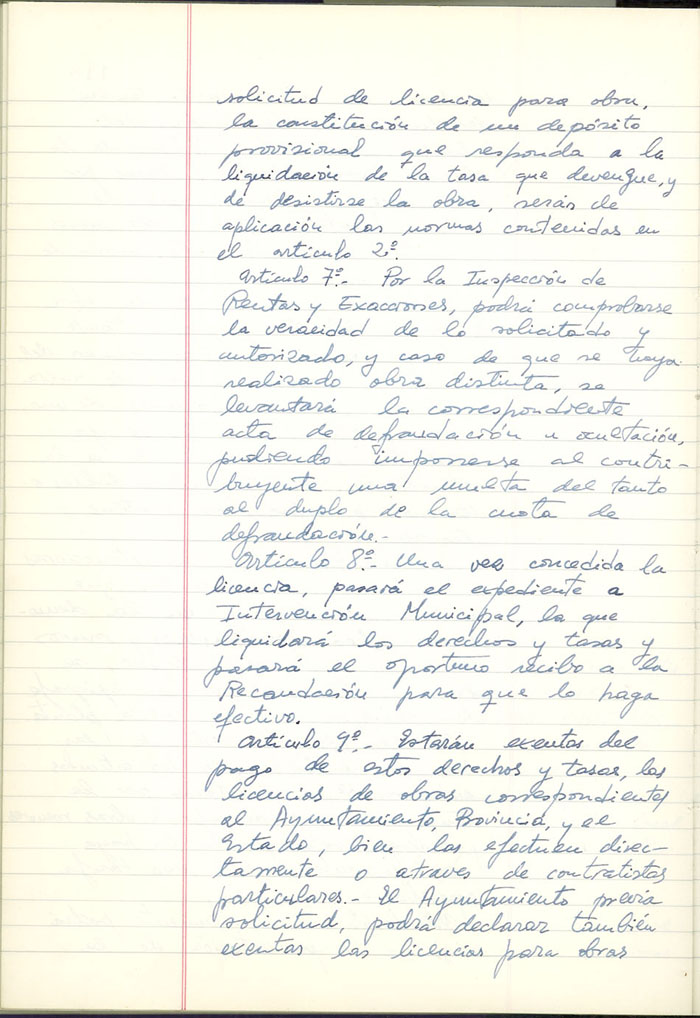 solicitud de licencia para obra,
la constitución de un depósito
provisional que responda a la
liquidación de la tasa que devengue, y
de desistirse la obra, serás de
aplicación las normas contenidas en
el artículo 2º.
Artículo 7º.- Por la Inspección de
Rentas y Exacciones, podrá comprobarse
la veracidad de lo solicitado y
autorizado, y caso de que se haya
realizado obra distinta, se
levantará la correspondiente
acta de defraudación u ocultación,
pudiendo imponerse al contri-
buyente una multa del tanto
al duplo de la cuota de
defraudación.-
Artículo 8º.- Una vez concedida la
licencia, pasará el expediente a
Intervención Municipal, la que
liquidará los derechos y tasas y
pasará el oportuno recibo a la
Recaudación para que lo haga
efectivo.
Artículo 9º.- Estarán exentas del
pago de estos derechos y tasas, las
licencias de obras correspondientes
al Ayuntamiento, Provincia, y el
Estado, bien las efectuen direc-
tamente o através de contratistas
particulares.- El Ayuntamiento previa
solicitud, podrá declarar también
exentas las licencias para obras